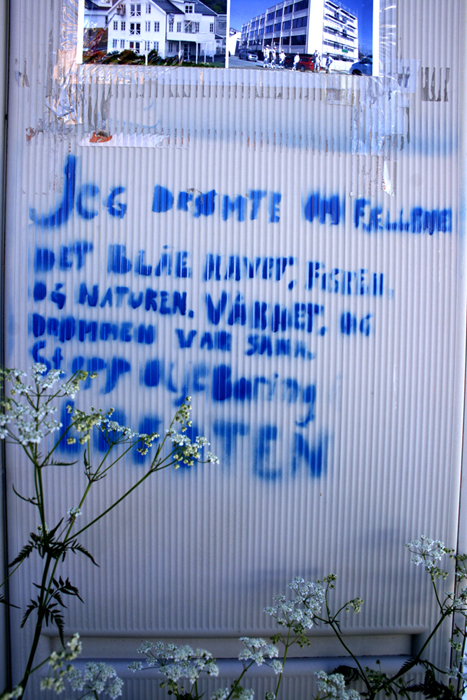 JEG DRØMTE OM FJELLENE
DET BLÅE HAVET,
OG NATUREN. VÅKNET, OG
DRØMMEN VAR SANN.
Stopp oljeBoring
LOFOTEN